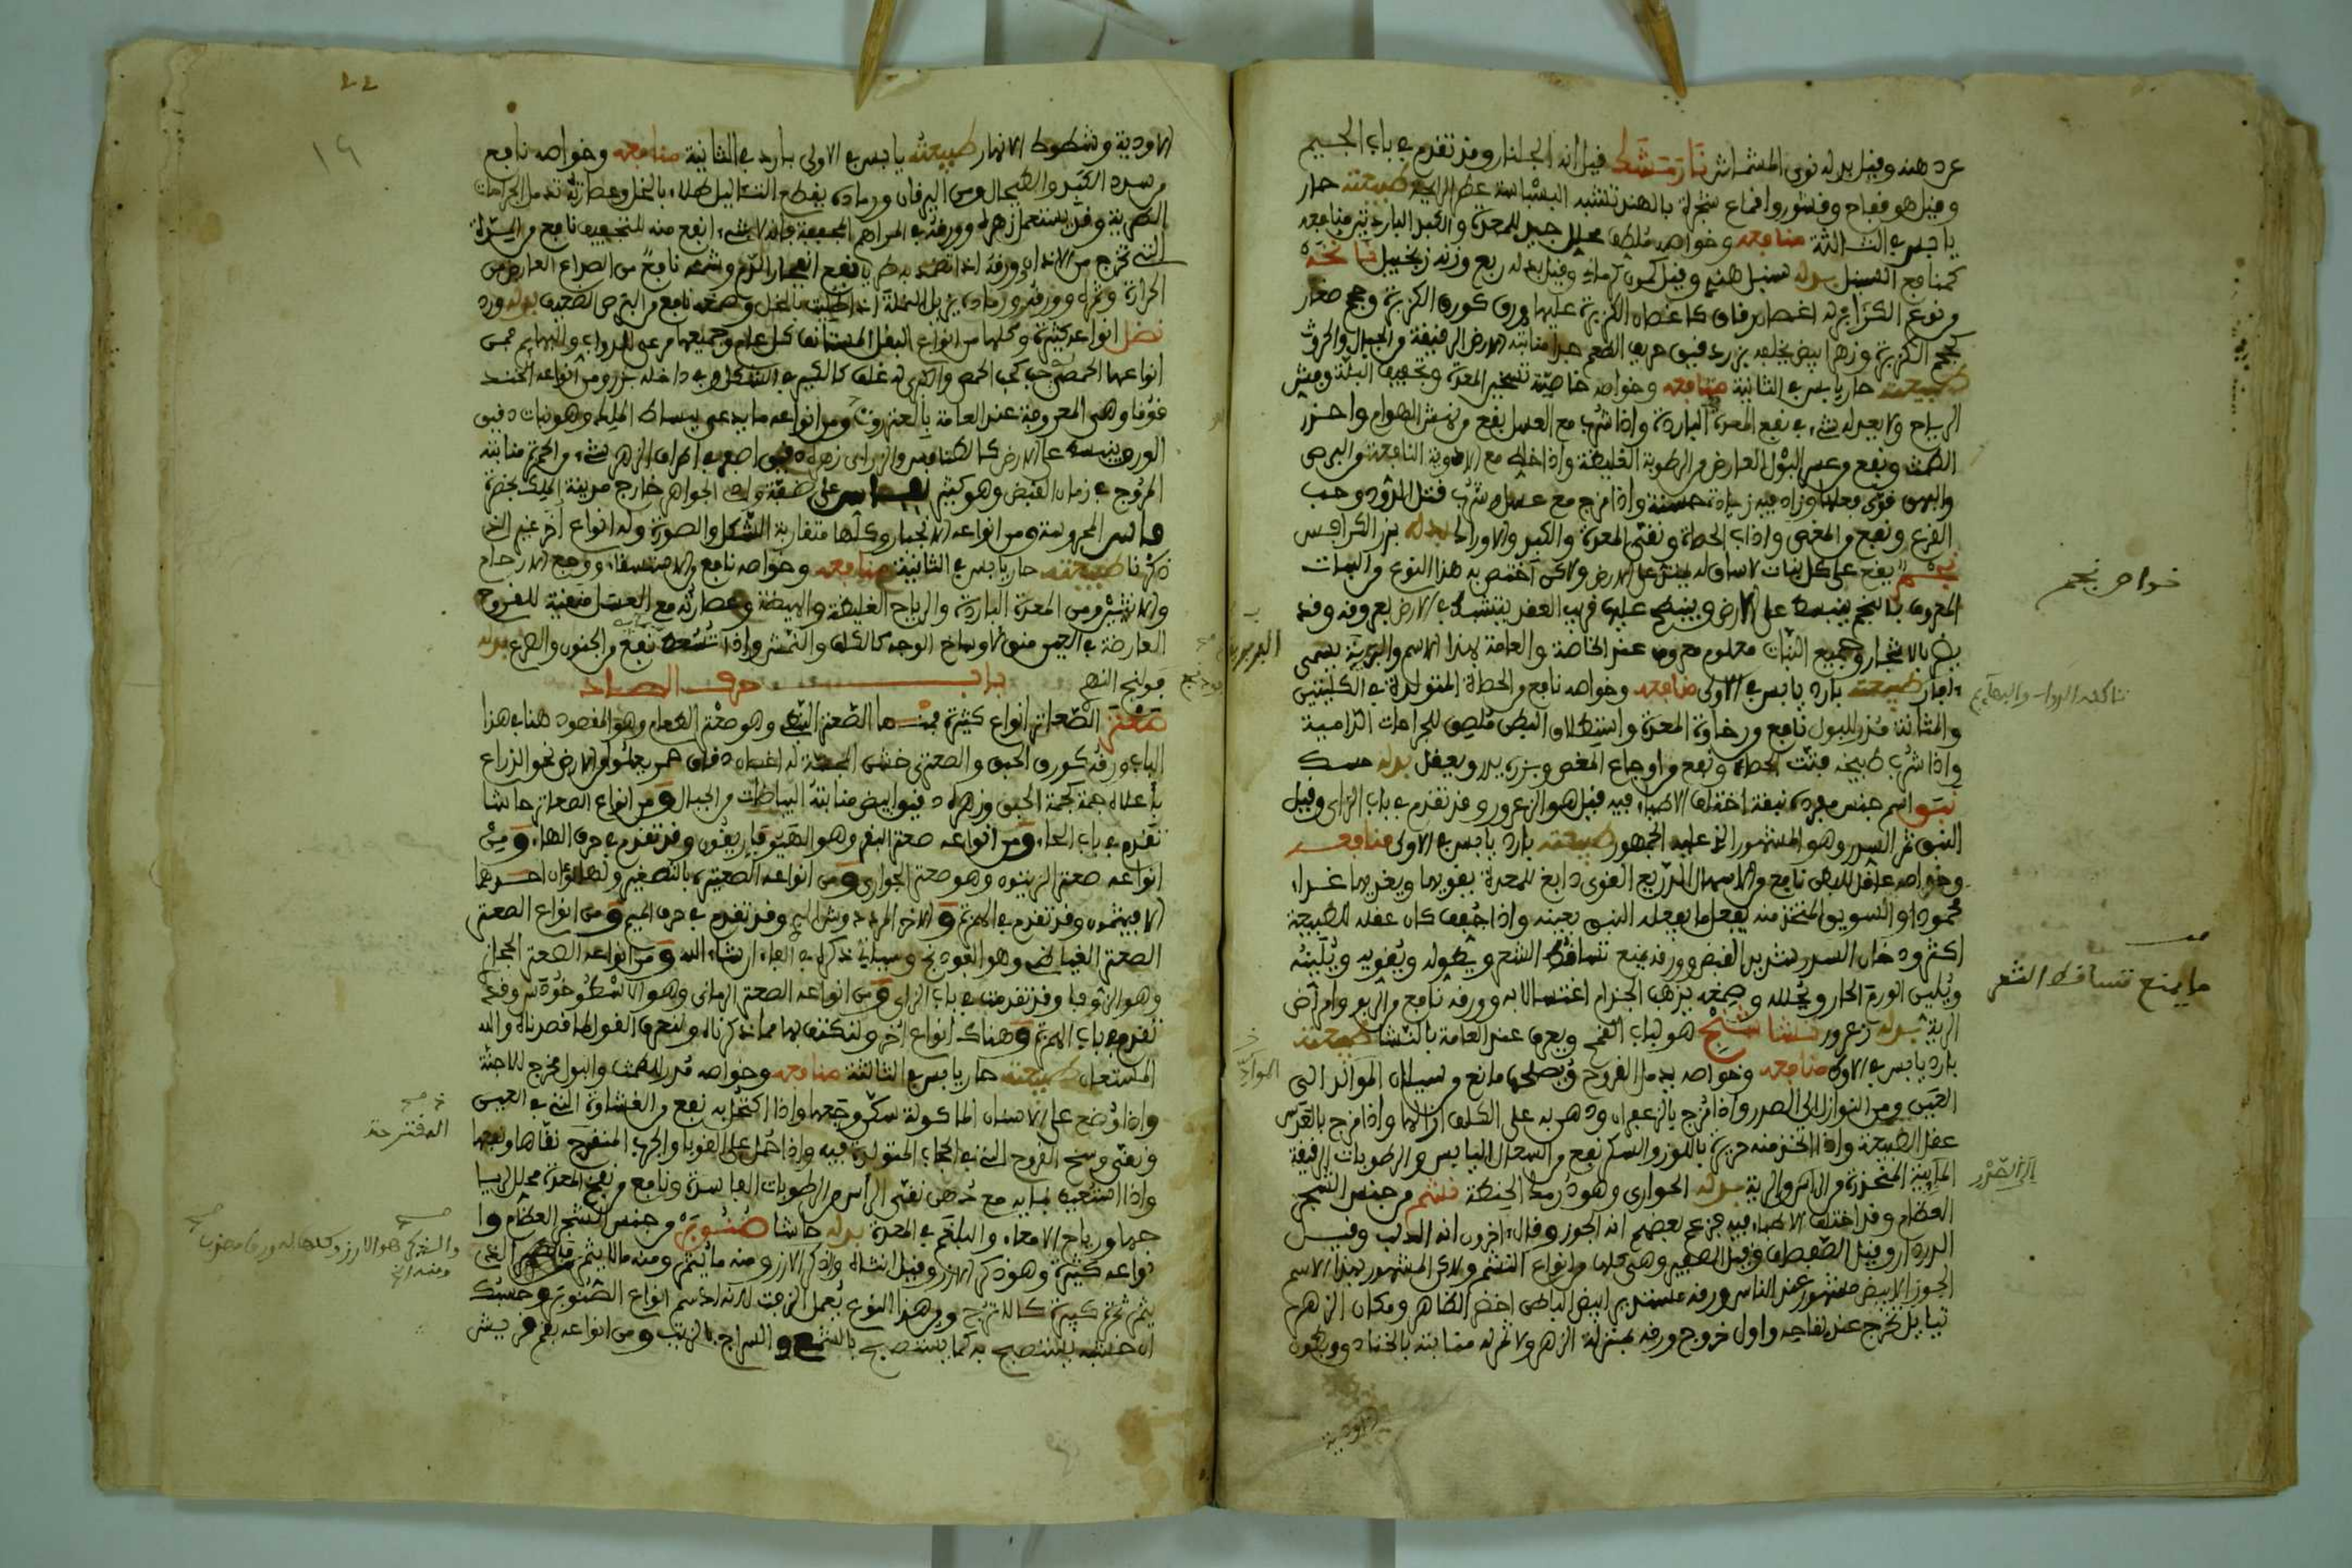 عرد هند وقيل بدله نوى المشماش نارمشك قيل انه الجلنار وقد تقدم في باب الجيم
وقيل هو فقاح وقشور واقماع شجرة بالهند تشبه البسباسة عطر الرايحة طبيعته حار
يابس في الثالثة منافعه وخواصه ملطف محلل جيد للمعدة والكبد الباردتين منافعه
كمنافع السنبل بدله سنبل هندي وقيل كمون كرماني وقيل بدله ربع وزنه زنجبيل نانخة
من نوع الكزابر له اغصان رقاق كاغصان الكزبرة عليها ورق كورق الكزبرة وجم صغار
كجم الكزبرة وزهر ابيض يخلفه بزر دقيق حريف الطعم جدا منابته الارض الرقيقة من الجبال والحروث
طبيعته حار يابس في الثانية منافعه وخواصه خاصيته تسخين المعدة وتجفيف البلة وفش
الرياح ولا يعدله شيء في نفع المعدة الباردة واذا شرب مع العسل نفع من نهش الهوام واحدر
الطمث ونفع من عسر البول العارض من الرطوبة الغليظة واذا خلط مع الادوية النافعة من البرص
والبهق قوى فعلها وزاد فيه زيادة حسنة واذا مزج مع عسل وشرب قتل الدود وحب
القرع ونفع من المغص واذاب الحصاة ونقى المعدة والكبد والاوراك بدله بزر الكرافس
نجم يقع على كل نبات لا ساق له ينبت على الارض ولاكن اختص به هذا النوع من النبات
المعروف بالنجم ينبسط على الارض وينسطح عليها قريب العقد يتشبك في الارض بعروقه وقد
يضر بالاشجار وجميع النبات معلوم معروف عند الخاصة والعامة بهذا الاسم والبربرية يسمى
افار طبيعته بارد يابس في الاولى منافعه وخواصه نافع من الحصاة المتولدة في الكليتين
والمثانة مدر للبول نافع من رخاوة المعدة واستطلاق البطن ملصق للجراحات الدامية
واذا شرب طبيخه فتت الحصاة ونفع من اوجاع المغص وبزره يدر ويعقل بدله حسك
نبق اسم جنس مفرده نبقة اختلف الاطباء فيه فقيل هو الزعرور وقد تقدم في باب الزاي وقيل
النبق ثمر السدر وهو المشهور الذي عليه الجمهور طبيعته بارد يابس في الاولى منافعه
وخواصه عاقل للبطن نافع من الاسهال الذريع القوي دابغ للمعدة يقويها ويغذيها غداء
محمودا والسويق المتخذ منه يفعل ما يفعله النبق بعينه واذا جفف كان عقله للطبيعة
اكثر ودخان السدر شديد القبض وورقه يمنع تساقط الشعر ويطوله ويقويه ويلينه
ويلين الورم الحار ويحلله وصمغه يذهب الجذام اغتسالا به وورقه نافع من الربو وامراض
الرية بدله زعرور نشاشتج هو لباب القمح ويعرف عند العامة بالنشا طبيعته
بارد يابس في الاولى منافعه وخواصه يدمل القروح ويصلحها مانع من سيلان المواد الى
العين ومن النوازل الى الصدر واذا مزج بالزعفران ودهن به على الكلف ازاله واذا مزج بالعدس
عقل الطبيعة واذا اتخذ منه حريرة باللوز والسكر نفع من السعال اليابس ومن الرطوبات الرقيقة
المايية المنحدرة من الراس والرية بدله الحوارى وهو درمك الحنطة نشم من جنس الشجر
العظام وقد اختلف الاطباء فيه فزعم بعضهم انه الجوز وقال اخرون انه الدلب وقيل
الدردار وقيل الصفصاف وقيل الصفير وهي كلها من انواع النشم ولاكن المشهور بهذا الاسم
الجوز الابيض مشهور عند الناس ورقه مستدير ابيض الباطن اخضر الظاهر ومكان الزهرة
تبايل تخرج عند لقاحه واول خروج ورقه بمنزلة الزهر ولا ثمر له منابته بالخنادق وبطون
الاودية
خواص نجم
تاكله الدواب والبهايم
ما يمنع تساقط الشعر
الاودية وشطوط الانهار طبيعته يابس في الاولى بارد في الثانية منافعه وخواصه نافع
من سدد الكبد والطحال ومن اليرقان ورماده يقطع الثئاليل طلاء بالخل وعصارته تدمل الجراحات
الطرية وقد يستعمل زهره وورقه في المراهم المجففة فانه لا شيء انفع منه للتجفيف نافع من المدة
التي تخرج من الاذان وورقه اذا تضمد به طريا نفع انفجار الدم وشمه نافع من الصداع العارض من
الحرارة وثمره وورقه ورماده يزيل النملة اذا طليت بالخل وصمغه نافع من البرص الضعيف بدله ورد
نفل انواعه كثيرة وكلها من انواع البقل المستانف كل عام وجميعها مرعى للدواب والبهايم فمن
انواعها الحمصي حبه كحب الحمص والاكبر له غلف كالكبير في الشكل وفي داخله بزر ومن انواعه الحند
قوقا وهي المعروفة عند العامة بالعنزروت ومن انواعه ما يدعى ببساط الملك وهو نبات دقيق
الورق ينبسط على الارض كالطنافس والزرابي زهره دقيق اصفر في اطراف الزهر شيء من الحمرة منابته
المروج في زمان القيض وهو كثير بفاس على ضفة وادي الجواهر خارج مدينة الملك بحضرة
فاس المحروسة ومن انواعه الانجبار وكلها متقاربة الشكل والصورة وله انواع اخر غير الذي
ذكرنا طبيعته حار يابس في الثانية منافعه وخواصه نافع من الاستسقاء ووجع الارحام
والانتشر ومن المعدة الباردة والرياح الغليظة والهيضة وعصارته مع العسل منقية للقروح
العارضة في العين منق لاوساخ الوجه كالكلف والنمش واذا تسعط نفع من الجنون والصرع بدله
فولنج النهر باب حرف الصاد
صعتر الصعاتر انواع كثيرة فمنها الصعتر البستي وهو صعتر الطعام وهو المقصود هنا في هذا
الباب ورقه كورق الحبق والصعتر خشن المجسة له اغصان دقاق حمر يعلو من الارض نحو الذراع
باعلاه جمة كجمة الحبق وزهره دقيق ابيض منابته البياضات من الجبال ومن انواع الصعاتر حاشا
تقدم في باب الحاء ومن انواعه صعتر البقر وهو الهيوفاريقون وقد تقدم في حرف الهاء ومن
انواعه صعتر الزيتون وهو صعتر الجواري ومن انواعه الصعيترة بالتصغير وله انواع احدهما
الافيثمون وقد تقدم في الهمزة والاخر المردددوش البري وقد تقدم في حرف الميم ومن انواع الصعتر
الصعتر الغياضي وهو الفودنج وسياتي ذكره في الفاء ان شاء الله ومن انواعه الصعتر الحجازي
وهو الزوفا وقد تقدمت في باب الزاي ومن انواعه الصعتر الرماني وهو الاسطوخودس وقد
تقدم في باب الهمزة وهناك انواع اخر ولنكتف بها مما ذكرناه ولنصرف القول لما قصدناه والله
المستعان طبيعته حار يابس في الثالثة منافعه وخواصه مدر للطمث والبول مخرج للاجنة
واذا وضع على الاسنان الماكولة سكن وجعها واذا اكتحل به نفع من الغشاوة التي في العين
وينقي وسخ القروح التي في الحجاب المتولدة فيه واذا حمل على القوباء والجرب المتقرح نقاها ونفعها
واذا استعط بمايه مع دهن نقى الراس من الرطوبات الفاسدة ونافع من نفخ المعدة محلل لرياحها
جها ورياح الامعاء والبلغم في المعدة بدله حاشا صنوبر من جنس الشجر العظام وا
نواعه كثيرة وهو ذكر الارز وقيل انثاه والذكر الارز ومنه ما يثمر ومنه ما لا يثمر فالذي
يثمر ثمرة كبيرة كالاترج ومن هذا النوع يعمل الزفت لانه ادسم انواع الصنوبر وحسبك
ان خشبه يستصبح به كما يستصبح بالشمع والسراج بالزيت ومن انواعه بقم قريش
المقترحة